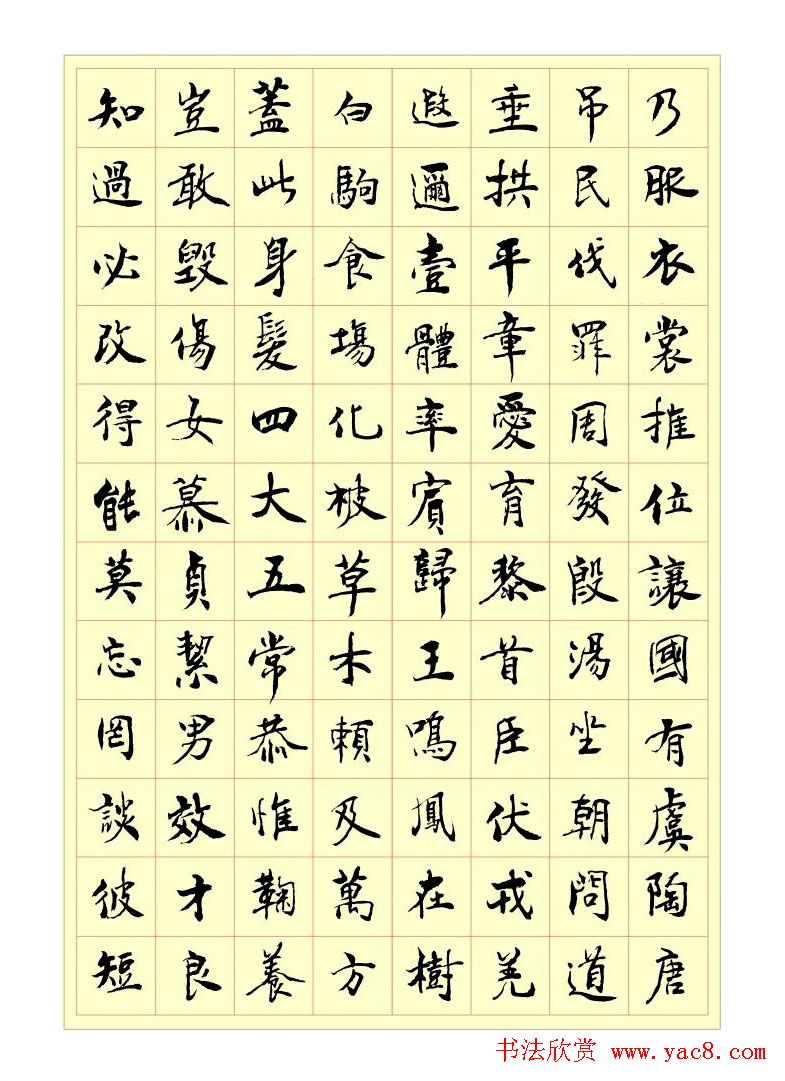 乃服衣裳推位讓國有虞陶唐
吊民伐罪周發殷湯坐朝問道
垂拱平章愛育黎首臣伏戎羌
遐邇壹體率賓歸王鳴鳳在樹
白駒食場化被草木賴及萬方
蓋此身髮四大五常恭惟鞠養
豈敢毀傷女慕貞絜男效才良
知過必改得能莫忘罔談彼短
书法欣赏 www.yac8.com